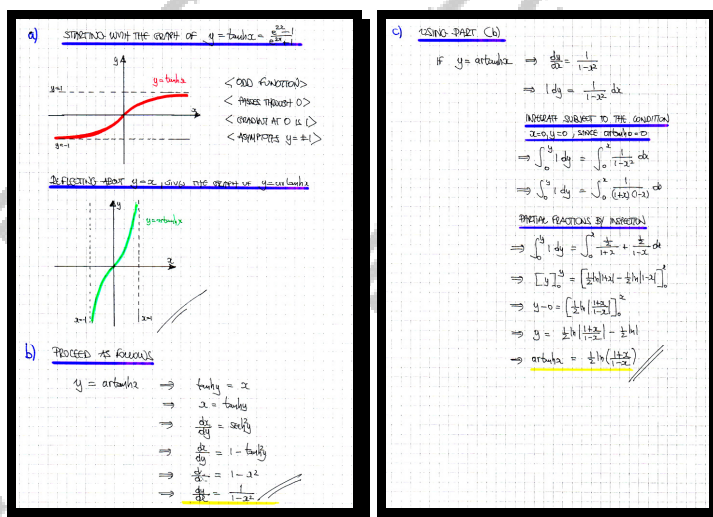 a) STARTING WITH THE GRAPH OF y = tanhx = (e^2x - 1)/(e^2x + 1)
y
y=tanhx
y=1
x
y=-1
< ODD FUNCTION >
< PASSES THROUGH O >
< GRADIENT AT O IS 1 >
< ASYMPTOTES y = ±1 >
REFLECTING ABOUT y = x, GIVES THE GRAPH OF y = artanhx
y
y=artanhx
x
x=-1
x=1
b) PROCEED AS FOLLOWS
y = artanhx ⇒ tanhy = x
⇒ x = tanhy
⇒ dx/dy = sech²y
⇒ dx/dy = 1 - tanh²y
⇒ dx/dy = 1 - x²
⇒ dy/dx = 1/(1-x²)
c) USING PART (b)
IF y = artanhx ⇒ dy/dx = 1/(1-x²)
⇒ 1 dy = 1/(1-x²) dx
INTEGRATE SUBJECT TO THE CONDITION
x=0, y=0, SINCE artanh0=0
⇒ ∫₀^y 1 dy = ∫₀^x 1/(1-x²) dx
⇒ ∫₀^y 1 dy = ∫₀^x 1/((1+x)(1-x)) dx
PARTIAL FRACTIONS BY INSPECTION
⇒ ∫₀^y 1 dy = ∫₀^x ½/(1+x) + ½/(1-x) dx
⇒ [y]₀^y = [½ln|1+x| - ½ln|1-x|]₀^x
⇒ y-0 = [½ln|(1+x)/(1-x)|]₀^x
⇒ y = ½ln|(1+x)/(1-x)| - ½ln1
⇒ artanhx = ½ln((1+x)/(1-x))